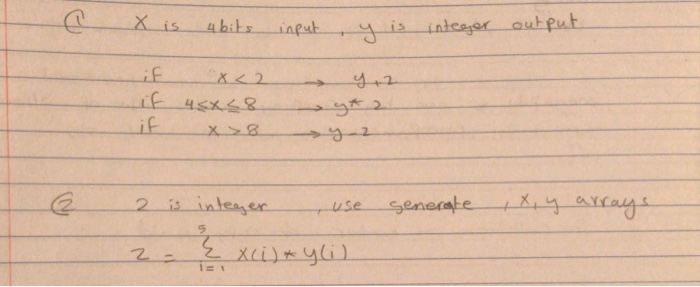 ① X is 4bits input, y is integer output
if x<2 → y+2
if 4≤x≤8 → y*2
if x>8 → y-2
② 2 is integer, use generate, x,y arrays
5
2 = Σ x(i)*y(i)
i=1